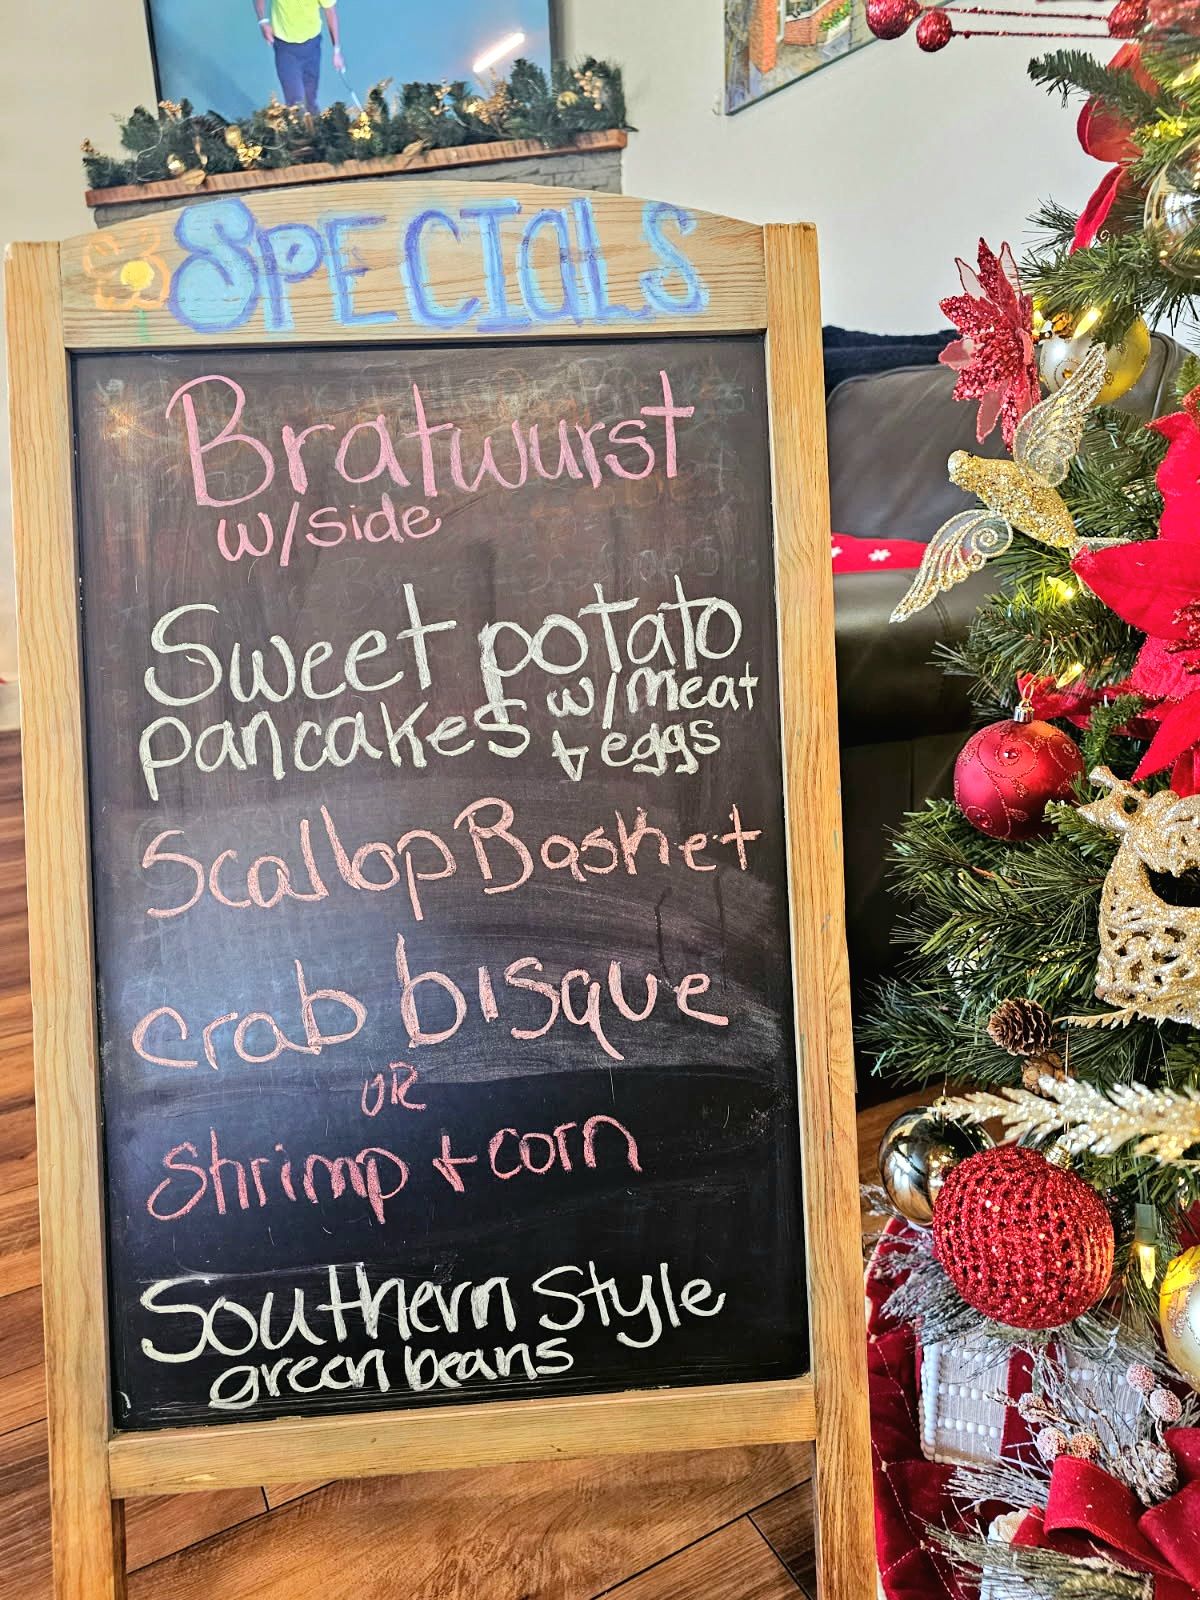 SPECIALS
Bratwurst
w/side
Sweet potato
pancakes w/meat
+ eggs
Scallop Basket
crab bisque
OR
shrimp + corn
Southern Style
green beans